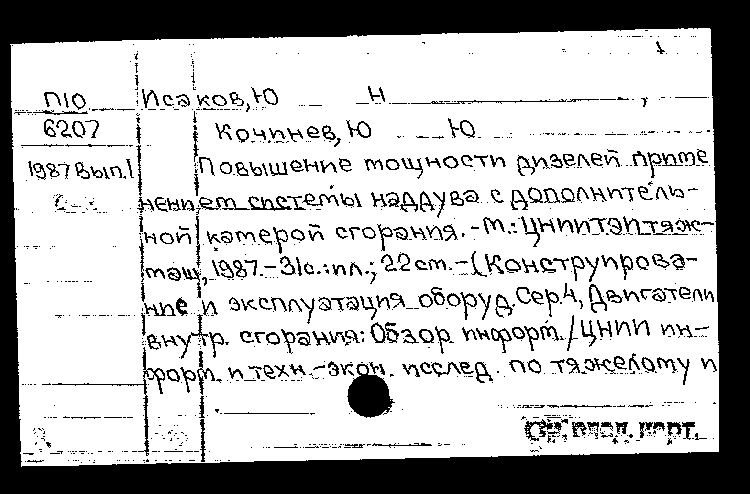 П10 Исаков, Ю Н
6207 Кочинев, Ю Ю
1987 Вып.1 Повышение мощности дизелей приме
нением системы наддува с дополнитель-
ной камерой сгорания. - М.: ЦНИИТЭИтяж-
маш, 1987. - 31с.: ил.; 22 см. - (Конструирова-
ние и эксплуатация оборуд. Сер. 4, Двигатели
внутр. сгорания: Обзор. информ. / ЦНИИ ин-
форм. и техн.-экон. исслед. по тяжелому и
См. след. карт.